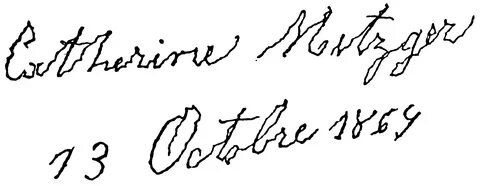 Catherine Metzger
13 Octobre 1869